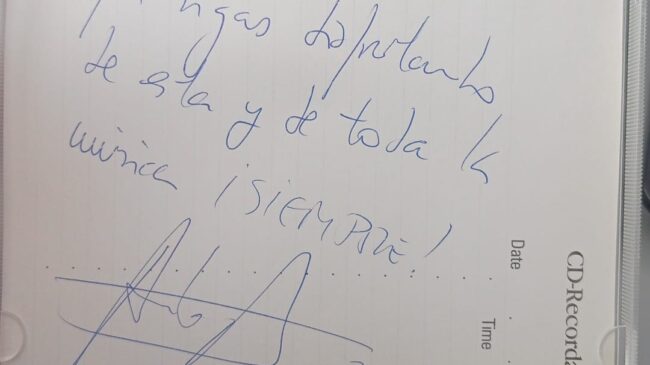 disfrutando
de esta y de toda la
música ¡SIEMPRE!
Date
Time
CD-Recorda